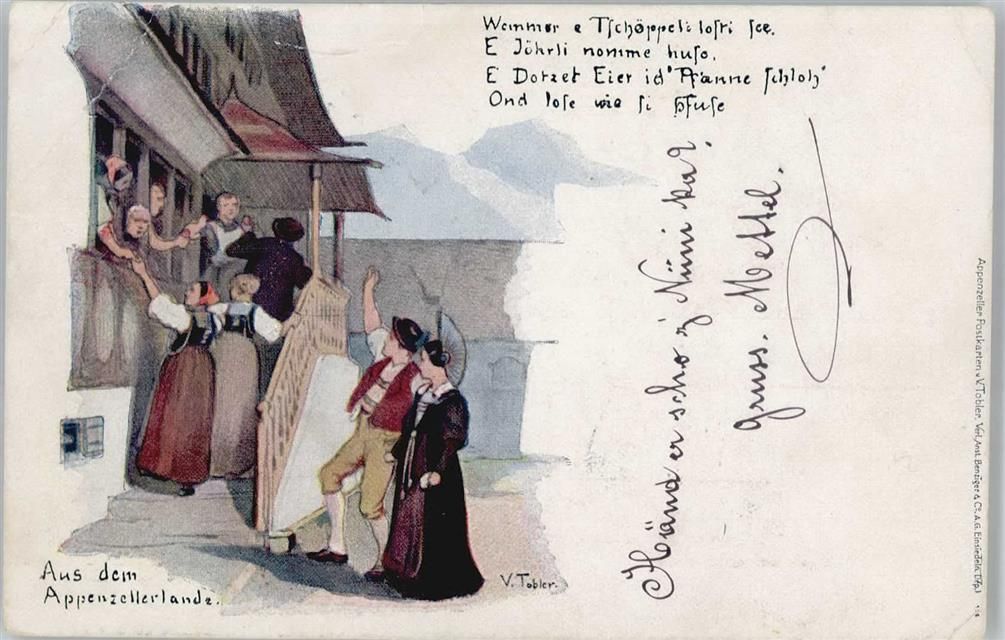 Wemmer e Tschöppeli losti see.
E Jöhrli nomme huse,
E Dotzet Eier id' Pfanne schloh'
Ond lose wie si pfuse
Händ er scho z' Nüni kag?
Gruss. Mettel.
Aus dem
Appenzellerlande.
V. Tobler.
Appenzeller Postkarten v. V. Tobler. Verl. Anst. Benziger & Co. A.G. Einsiedeln